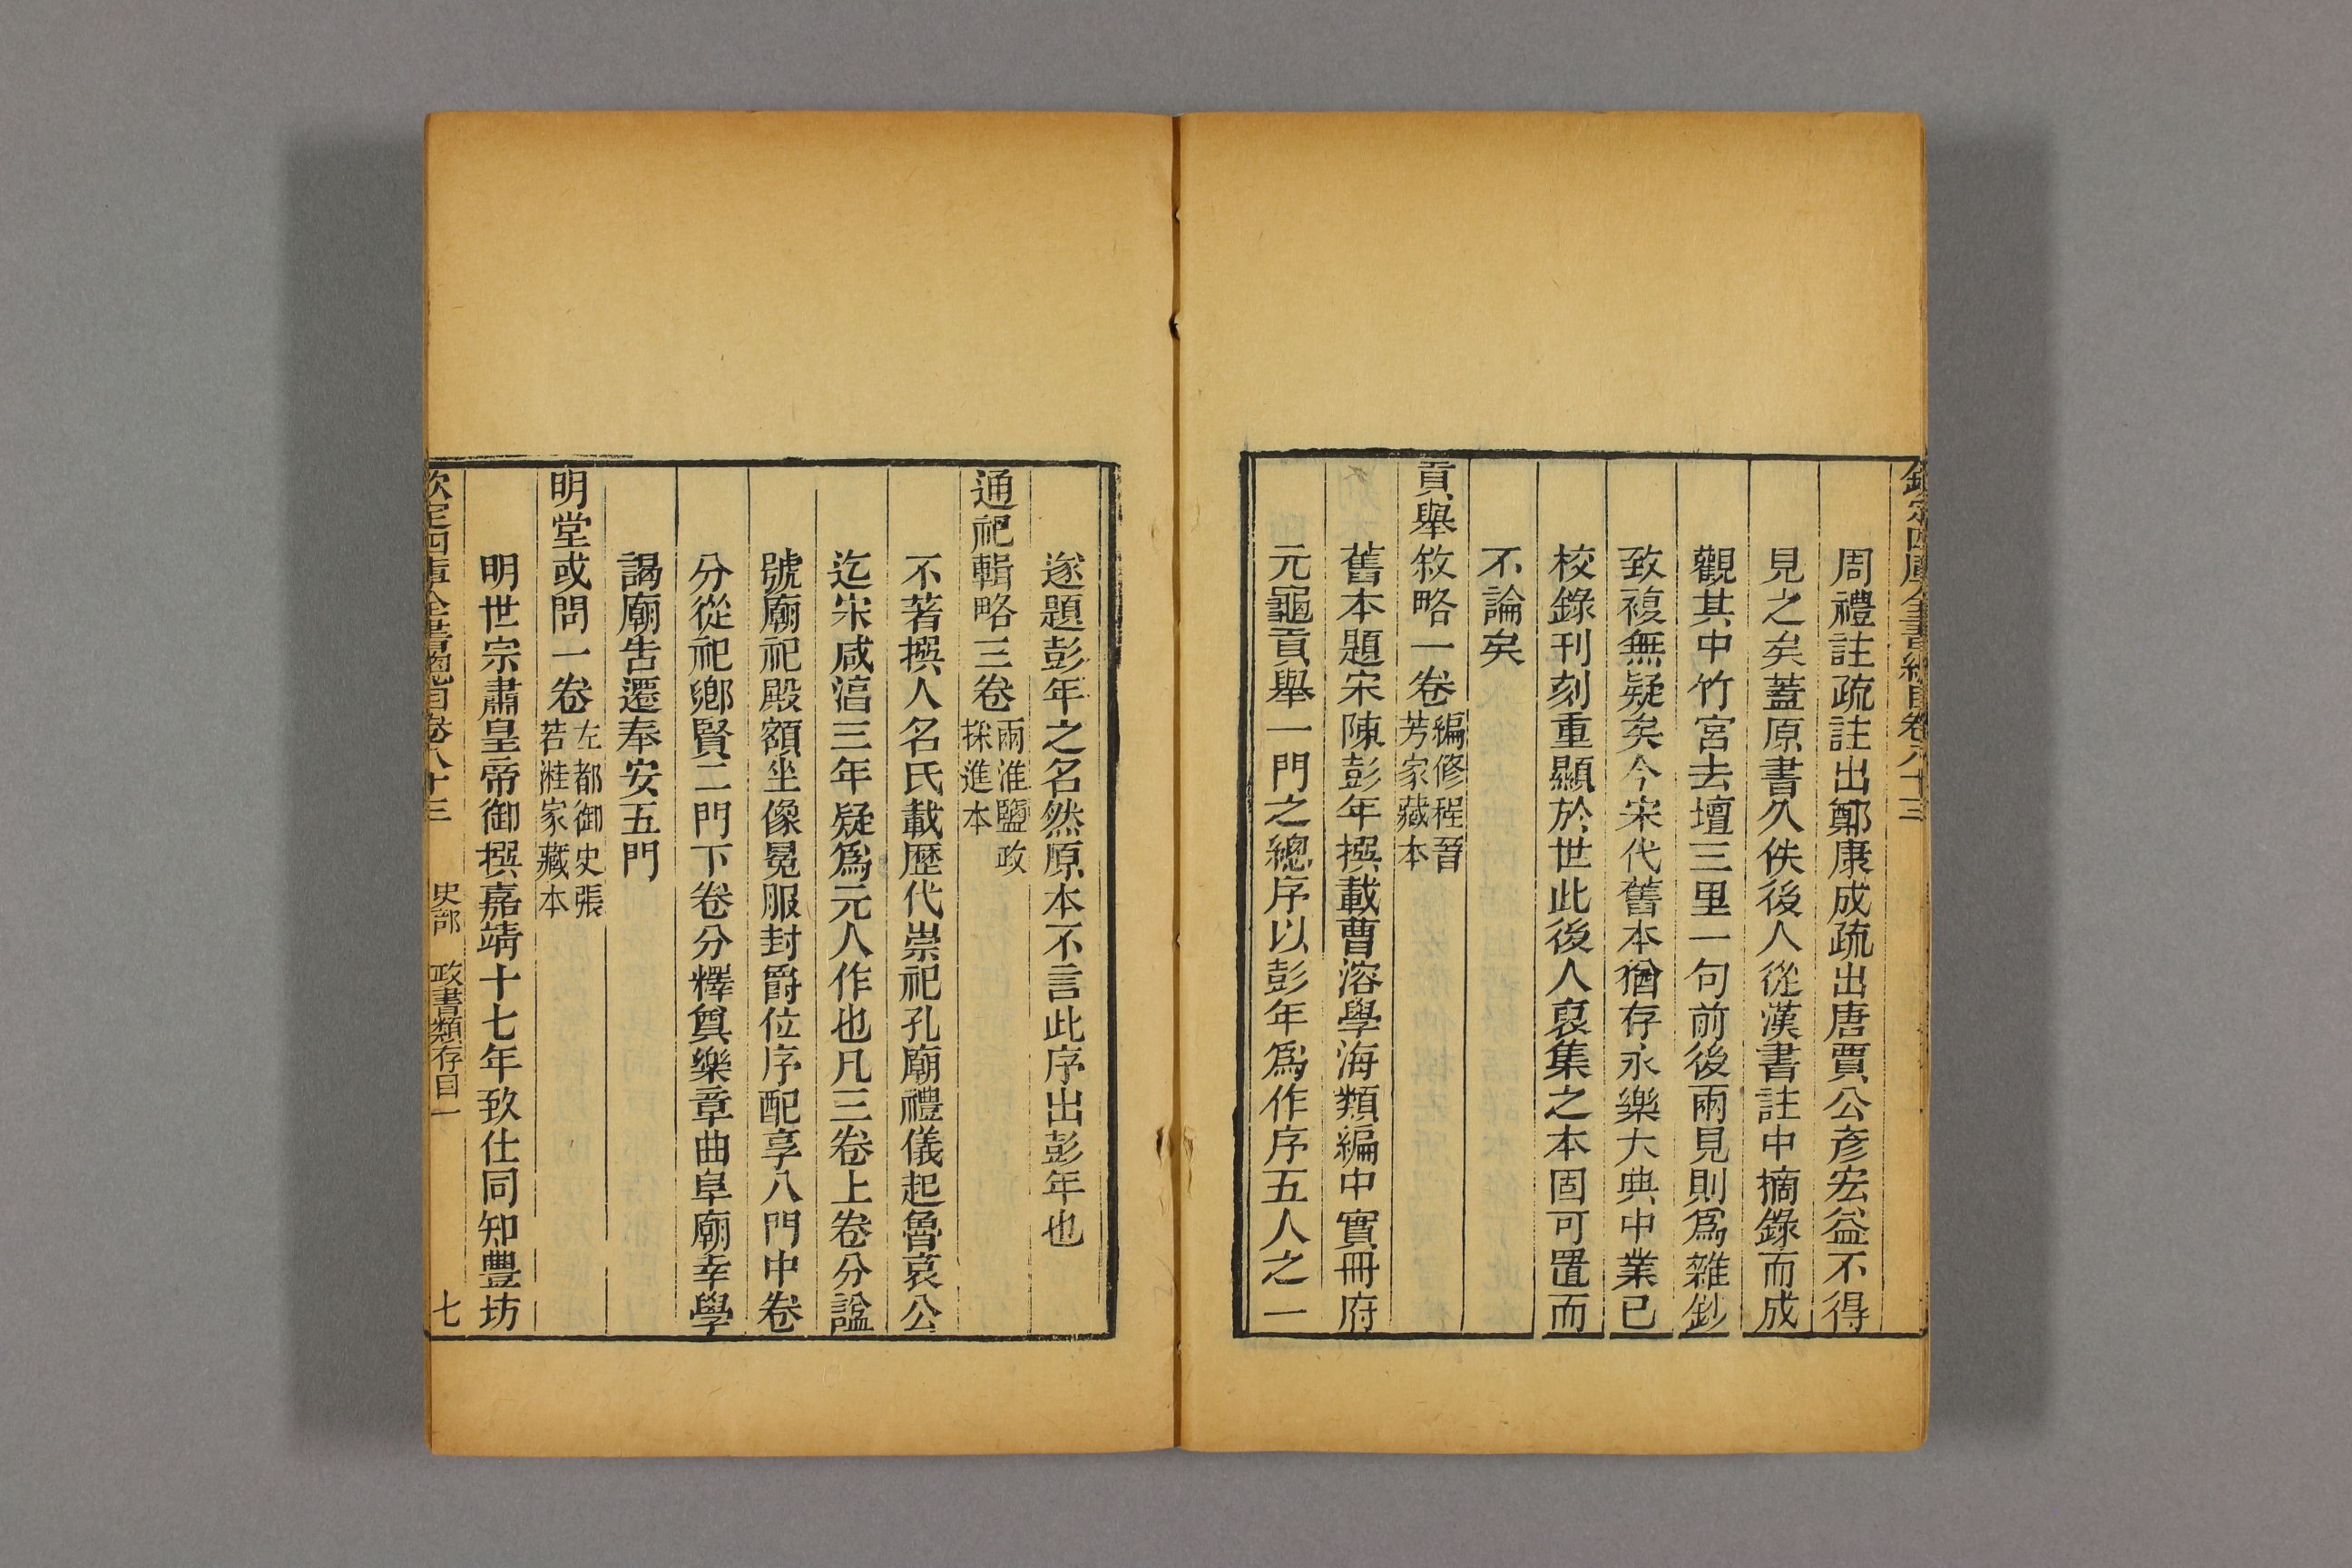 欽定四庫全書總目卷八十三
周禮註疏註出鄭康成疏出唐賈公彥宏益不得
見之矣蓋原書久佚後人從漢書註中摘錄而成
觀其中竹宮去壇三里一句前後兩見則爲雜鈔
致複無疑矣今宋代舊本猶存永樂大典中業已
校錄刊刻重顯於世此後人裒集之本固可置而
不論矣
貢舉敘略一卷編修程晉
芳家藏本
舊本題宋陳彭年撰載曹溶學海類編中實冊府
元龜貢舉一門之總序以彭年爲作序五人之一
遂題彭年之名然原本不言此序出彭年也
通祀輯略三卷兩淮鹽政
採進本
不著撰人名氏載歷代崇祀孔廟禮儀起魯哀公
迄宋咸淳三年疑爲元人作也凡三卷上卷分諡
號廟祀殿額坐像冕服封爵位序配享八門中卷
分從祀鄉賢二門下卷分釋奠樂章曲阜廟幸學
謁廟告遷奉安五門
明堂或問一卷左都御史張
若溎家藏本
明世宗肅皇帝御撰嘉靖十七年致仕同知豐坊
欽定四庫全書總目卷八十三 史部 政書類存目一 七